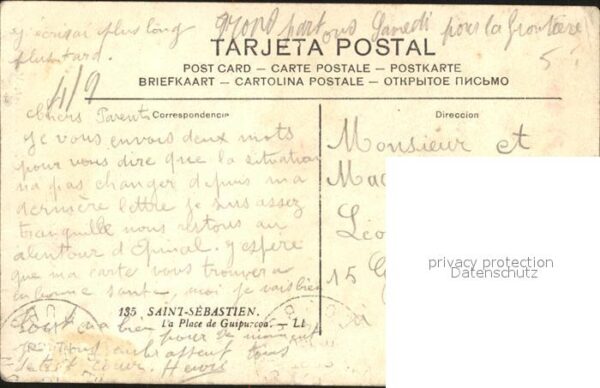 j'écrirai plus long
plus tard.
partons Samedi pour la frontière
4/9
TARJETA POSTAL
POST CARD – CARTE POSTALE – POSTKARTE
BRIEFKAART – CARTOLINA POSTALE – ОТКРЫТОЕ ПИСЬМО
Correspondencia
Direccion
Chers Parents
je vous envois deux mots
pour vous dire que la situation
n'a pas changer depuis ma
dernière lettre je suis assez
tranquille nous restons au
alentour d'Epinal. J'espère
que ma carte vous trouvera
en bonne santé, moi je vais bien
135 SAINT-SÉBASTIEN.
La Place de Guipuzcoa. – LL
tout va bien pour le moment
je vous embrassent tous
Henri
Monsieur et
15
privacy protection
Datenschutz